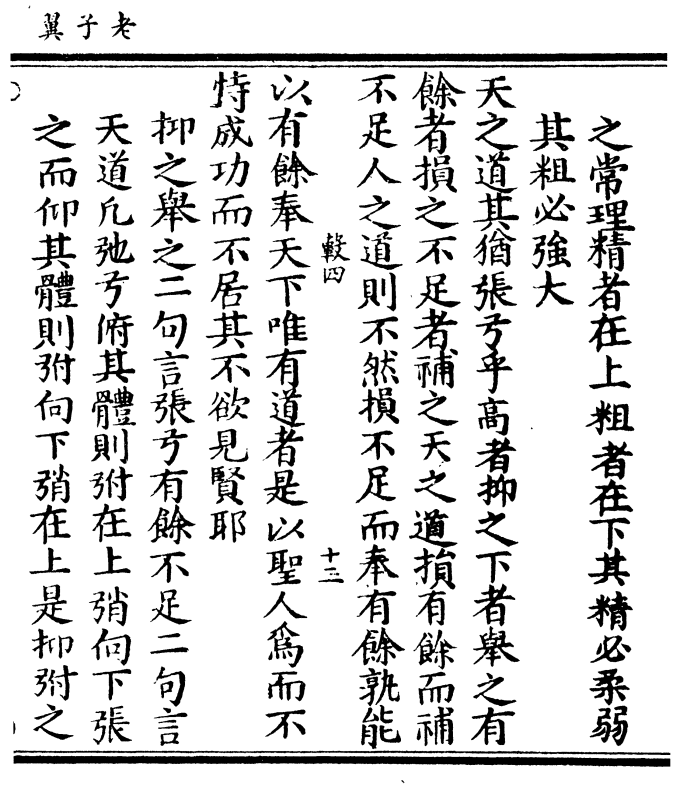 老子翼
之常理精者在上粗者在下其精必柔弱
其粗必強大
天之道其猶張弓乎高者抑之下者舉之有
餘者損之不足者補之天之道損有餘而補
不足人之道則不然損不足而奉有餘孰能
十二
以有餘奉天下唯有道者是以聖人爲而不
恃成功而不居其不欲見賢耶
抑之舉之二句言張弓有餘不足二句言
天道凡弛弓俯其體則弣在上弰向下張
之而仰其體則弣向下弰在上是抑弣之